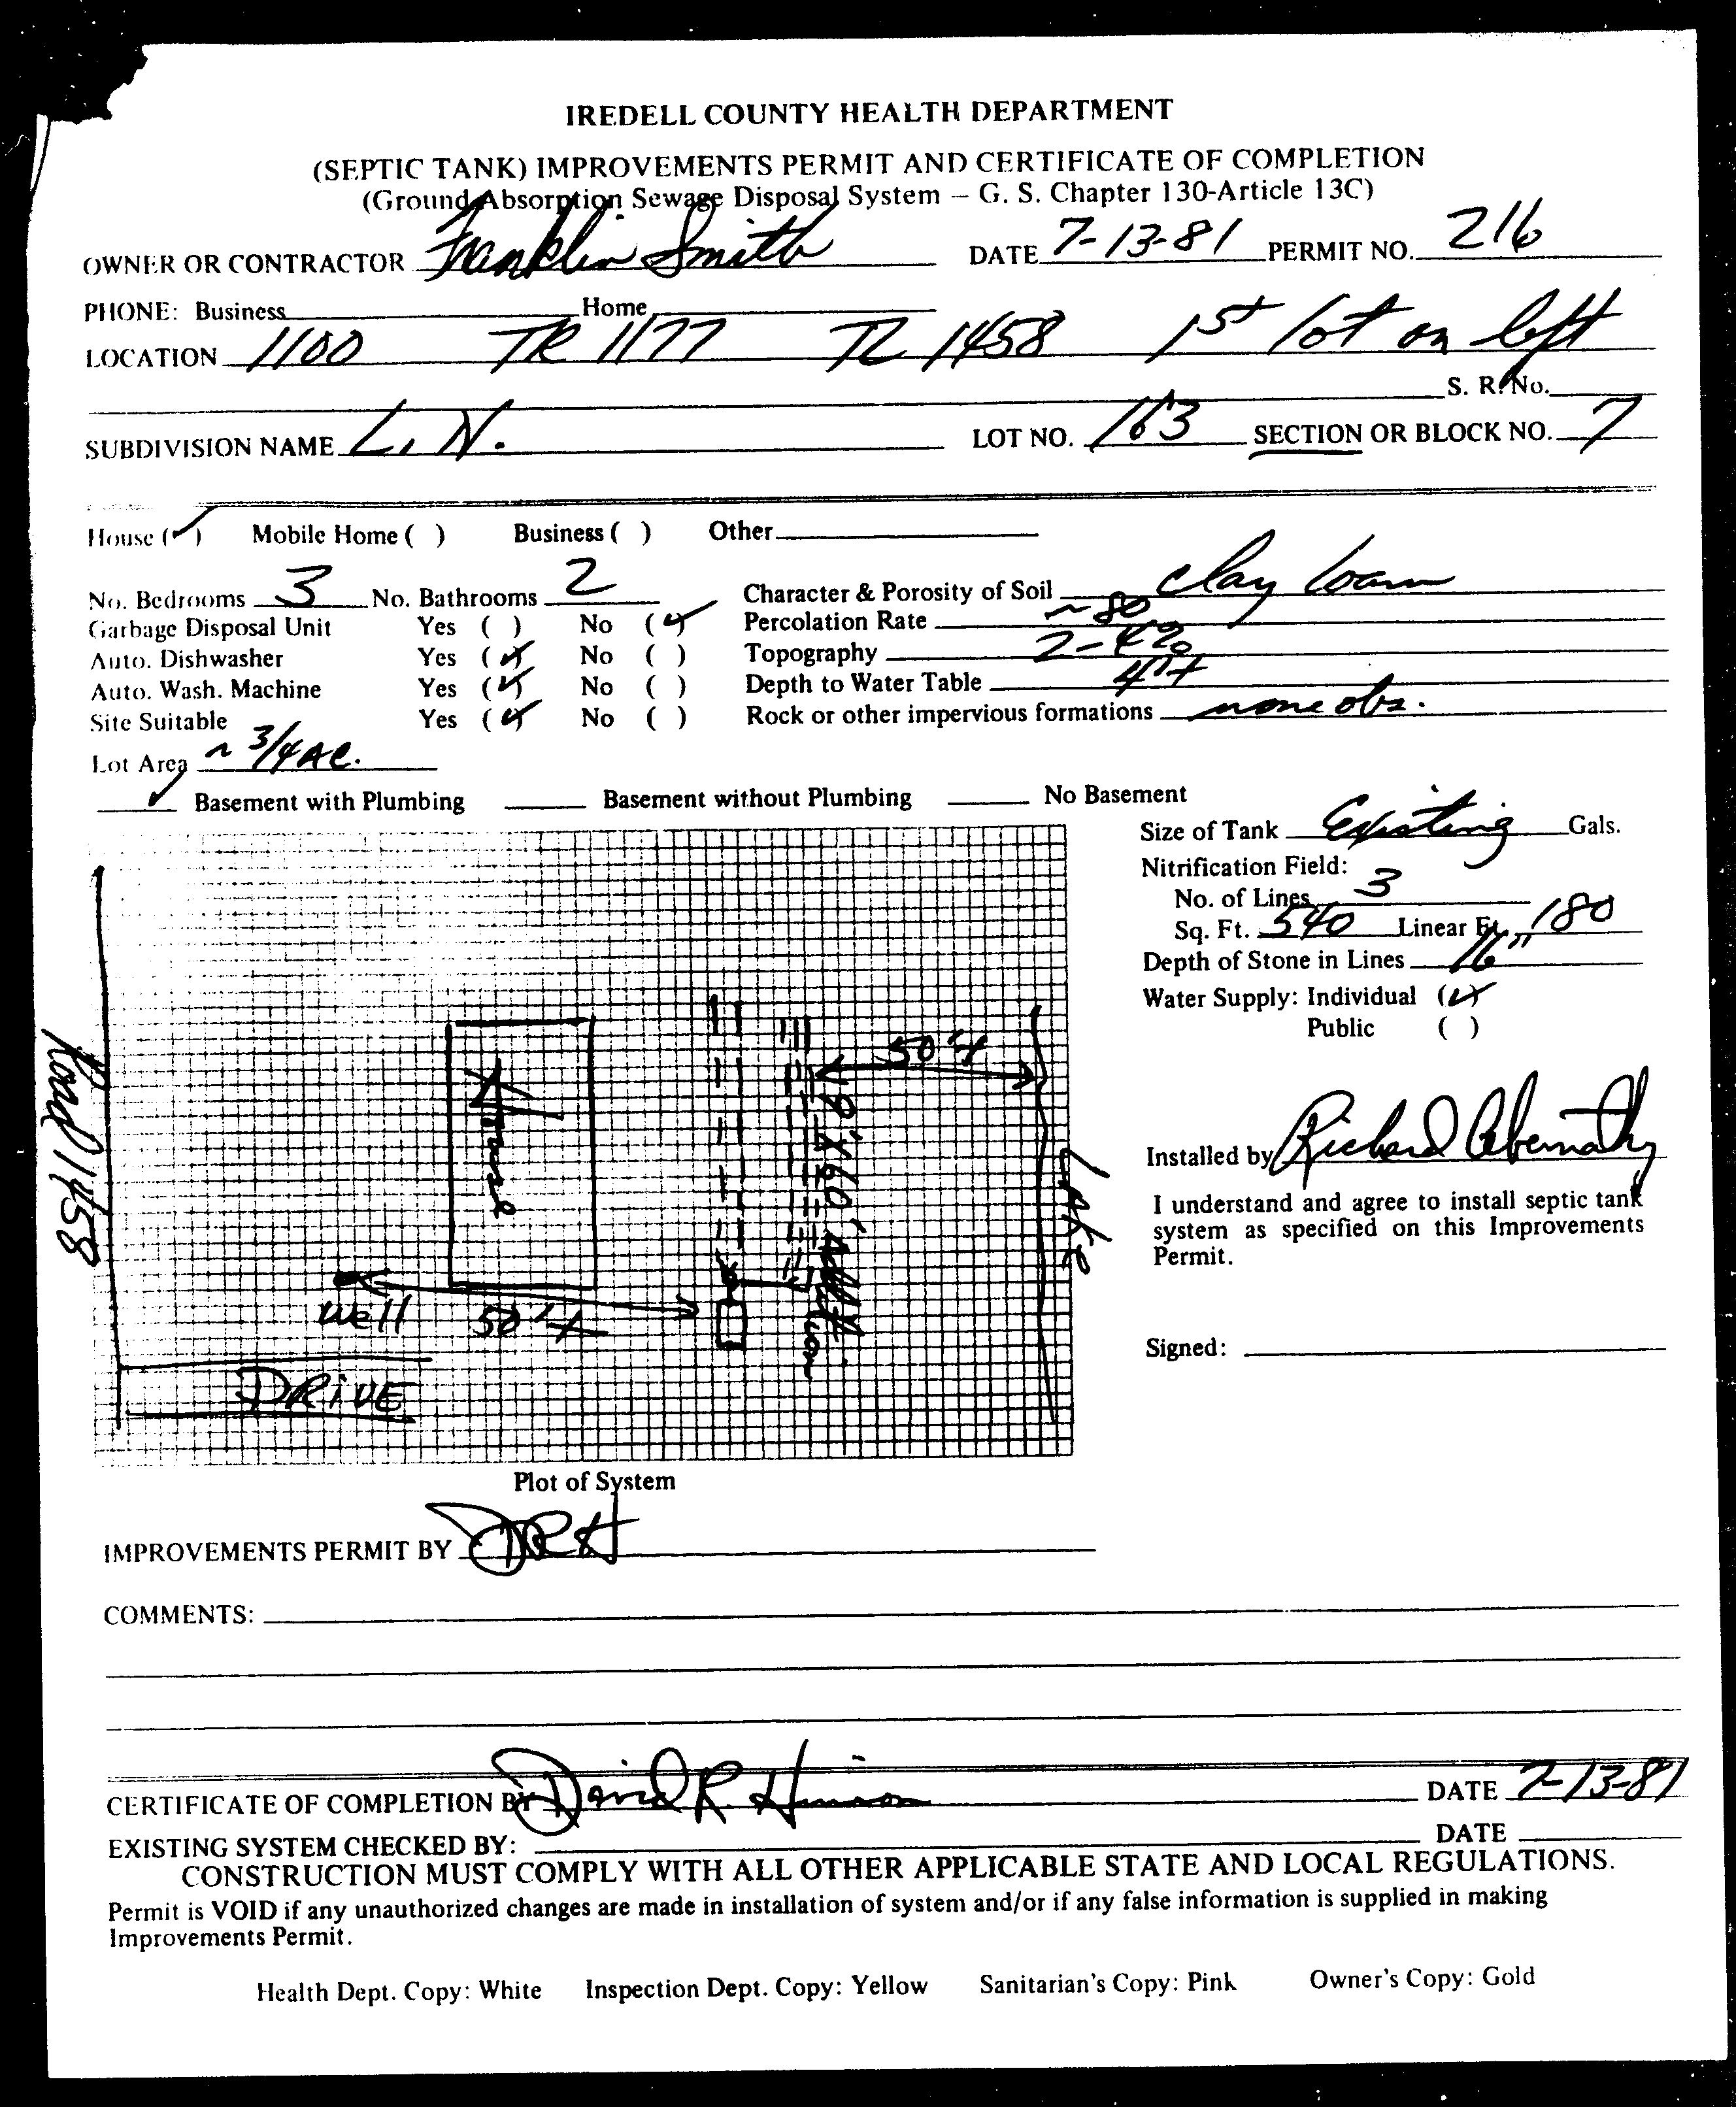 IREDELL COUNTY HEALTH DEPARTMENT
(SEPTIC TANK) IMPROVEMENTS PERMIT AND CERTIFICATE OF COMPLETION
(Ground Absorption Sewage Disposal System – G. S. Chapter 130-Article 13C)
OWNER OR CONTRACTOR Franklin Smith DATE 7-13-81 PERMIT NO. 216
PHONE: Business Home
LOCATION 1100 TR 1177 TL 1458 1st lot on left
S. R. No.
SUBDIVISION NAME L. N. LOT NO. 163 SECTION OR BLOCK NO. 7
House (✓) Mobile Home ( ) Business ( ) Other
No. Bedrooms 3 No. Bathrooms 2 Character & Porosity of Soil clay loam
Garbage Disposal Unit Yes ( ) No (✓) Percolation Rate ~80
Auto. Dishwasher Yes (✓) No ( ) Topography 2-4%
Auto. Wash. Machine Yes (✓) No ( ) Depth to Water Table 4'+
Site Suitable Yes (✓) No ( ) Rock or other impervious formations none obs.
Lot Area ~ 3/4 AC.
✓ Basement with Plumbing Basement without Plumbing No Basement
Size of Tank Existing Gals.
Nitrification Field:
No. of Lines 3
Sq. Ft. 540 Linear Ft. 180
Depth of Stone in Lines 16"
Water Supply: Individual (✓)
Public ( )
Road 1458
House
50'+
9'X60' Addition
Lake
well 50'+
DRIVE
Installed by Richard Abernathy
I understand and agree to install septic tank
system as specified on this Improvements
Permit.
Signed:
Plot of System
IMPROVEMENTS PERMIT BY DRH
COMMENTS:
CERTIFICATE OF COMPLETION BY David R. Hinson DATE 7-13-81
EXISTING SYSTEM CHECKED BY: DATE
CONSTRUCTION MUST COMPLY WITH ALL OTHER APPLICABLE STATE AND LOCAL REGULATIONS.
Permit is VOID if any unauthorized changes are made in installation of system and/or if any false information is supplied in making
Improvements Permit.
Health Dept. Copy: White Inspection Dept. Copy: Yellow Sanitarian's Copy: Pink Owner's Copy: Gold